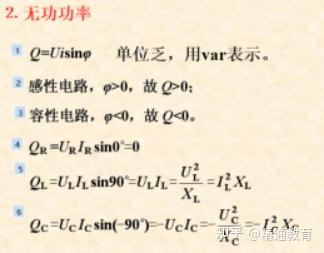 2. 无功功率
1 Q=Uisinφ 单位乏，用var表示。
2 感性电路，φ>0，故 Q>0；
3 容性电路，φ<0，故 Q<0。
4 Q_R=U_R I_R sin0°=0
5 Q_L=U_L I_L sin90°=U_L I_L=U_L²/X_L=I_L² X_L
6 Q_C=U_C I_C sin(-90°)=-U_C I_C=-U_C²/X_C=-I_C² X_C
知乎 @精通教育